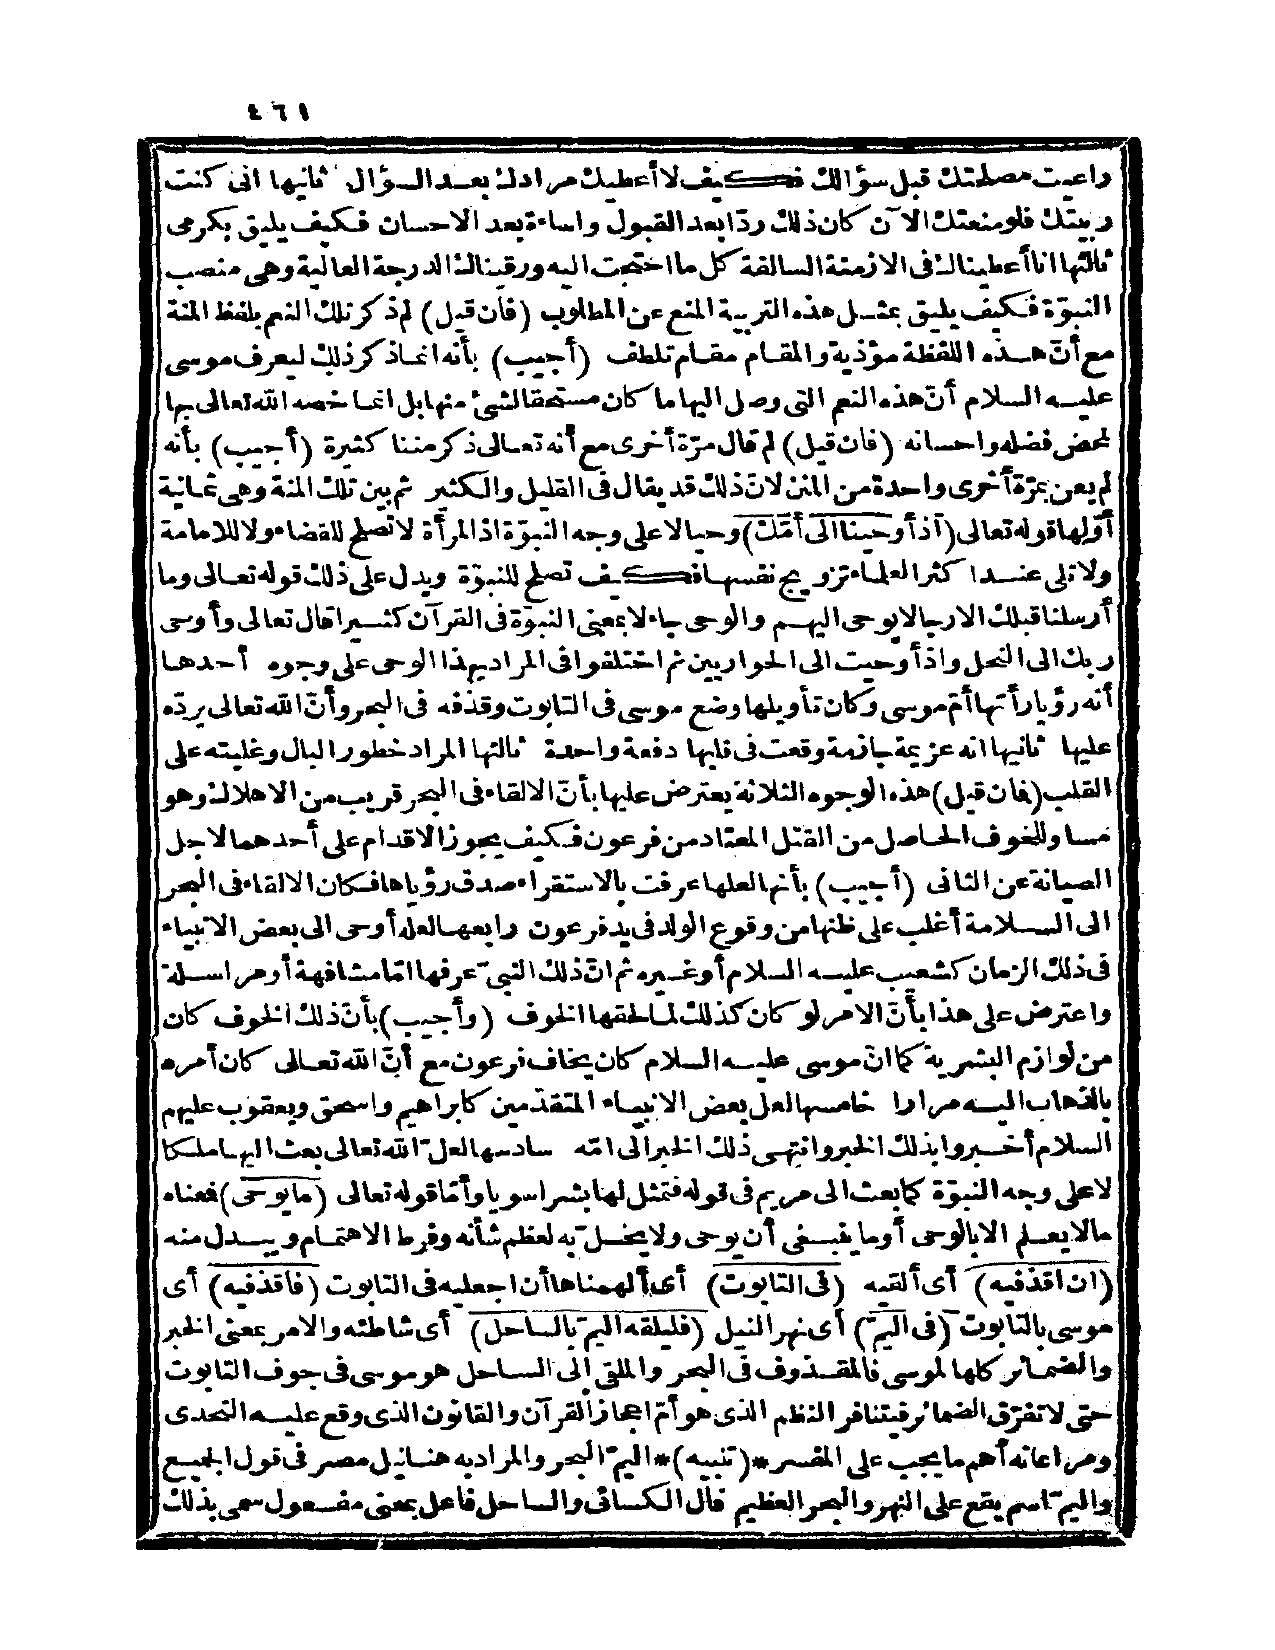 ٤٦١
راعيت مصلحتك قبل سؤالك فكيف لا أعطيك مرادك بعد السؤال ثانيها انى كنت
ربيتك فلو منعتك الآن كان ذلك ردّا بعد القبول واساءة بعد الاحسان فكيف يليق بكرمى
ثالثها انا أعطيناك فى الازمنة السالفة كل ما احتجت اليه ورقيناك الدرجة العالية وهى منصب
النبوّة فكيف يليق بمثل هذه التربية المنع عن المطلوب (فان قيل) لم ذكر تلك النعم بلفظ المنة
مع أنّ هذه اللفظة مؤذية والمقام مقام تلطف (أجيب) بأنه انما ذكر ذلك ليعرف موسى
عليه السلام أنّ هذه النعم التى وصل اليها ما كان مستحقا لشئ منها بل انما خصه الله تعالى بها
لمحض فضله واحسانه (فان قيل) لم قال مرّة أخرى مع أنه تعالى ذكر مننا كثيرة (أجيب) بأنه
لم يعن بمرّة أخرى واحدة من المنن لانّ ذلك قد يقال فى القليل والكثير ثم بين تلك المنة وهى ثمانية
أوّلها قوله تعالى (اذ أوحينا الى أمّك) وحيا لا على وجه النبوّة اذ المرأة لا تصلح للقضاء ولا للامامة
ولا تلى عند أكثر العلماء تزويج نفسها فكيف تصلح للنبوّة ويدل على ذلك قوله تعالى وما
أرسلنا قبلك الا رجالا يوحى اليهم والوحى جاء لا بمعنى النبوّة فى القرآن كثيرا قال تعالى وأوحى
ربك الى النحل واذ أوحيت الى الحواريين ثم اختلفوا فى المراد بهذا الوحى على وجوه أحدها
أنه رؤيا رأتها أمّ موسى وكان تأويلها وضع موسى فى التابوت وقذفه فى البحر وأنّ الله تعالى يردّه
عليها ثانيها انه عزيمة جازمة وقعت فى قلبها دفعة واحدة ثالثها المراد خطور البال وغلبته على
القلب (فان قيل) هذه الوجوه الثلاثة يعترض عليها بأنّ الالقاء فى البحر قريب من الاهلاك وهو
مساو للخوف الحاصل من القتل المعتاد من فرعون فكيف يجوز الاقدام على أحدهما لاجل
الصيانة عن الثانى (أجيب) بأنها لعلها عرفت بالاستقراء صدق رؤياها فكان الالقاء فى البحر
الى السلامة أغلب على ظنها من وقوع الولد فى يد فرعون رابعها لعله أوحى الى بعض الانبياء
فى ذلك الزمان كشعيب عليه السلام أو غيره ثم انّ ذلك النبىّ عرفها امّا مشافهة أو مراسلة
واعترض على هذا بأنّ الامر لو كان كذلك لما لحقها الخوف (وأجيب) بأنّ ذلك الخوف كان
من لوازم البشرية كما انّ موسى عليه السلام كان يخاف فرعون مع أنّ الله تعالى كان أمره
بالذهاب اليه مرارا خامسها لعل بعض الانبياء المتقدّمين كابراهيم واسحق ويعقوب عليهم
السلام أخبروا بذلك الخبر وانتهى ذلك الخبر الى امّه سادسها لعلّ الله تعالى بعث اليها ملكا
لا على وجه النبوّة كما بعث الى مريم فى قوله فتمثل لها بشرا سويا وأمّا قوله تعالى (ما يوحى) فمعناه
مالا يعلم الا بالوحى أو ما ينبغى أن يوحى ولا يخلّ به لعظم شأنه وفرط الاهتمام ويبدل منه
(ان اقذفيه) أى ألقيه (فى التابوت) أى ألهمناها أن اجعليه فى التابوت (فاقذفيه) أى
موسى بالتابوت (فى اليمّ) أى نهر النيل (فليلقه اليمّ بالساحل) أى شاطئه والامر بمعنى الخبر
والضمائر كلها لموسى فالمقذوف فى البحر والملقى الى الساحل هو موسى فى جوف التابوت
حتى لا تفرّق الضمائر فيتنافر النظم الذى هو أمّ اعجاز القرآن والقانون الذى وقع عليه التحدى
ومراعاته أهم ما يجب على المفسر *(تنبيه)* اليمّ البحر والمراد به هنا نيل مصر فى قول الجميع
واليمّ اسم يقع على النهر والبحر العظيم قال الكسائى والساحل فاعل بمعنى مفعول سمى بذلك